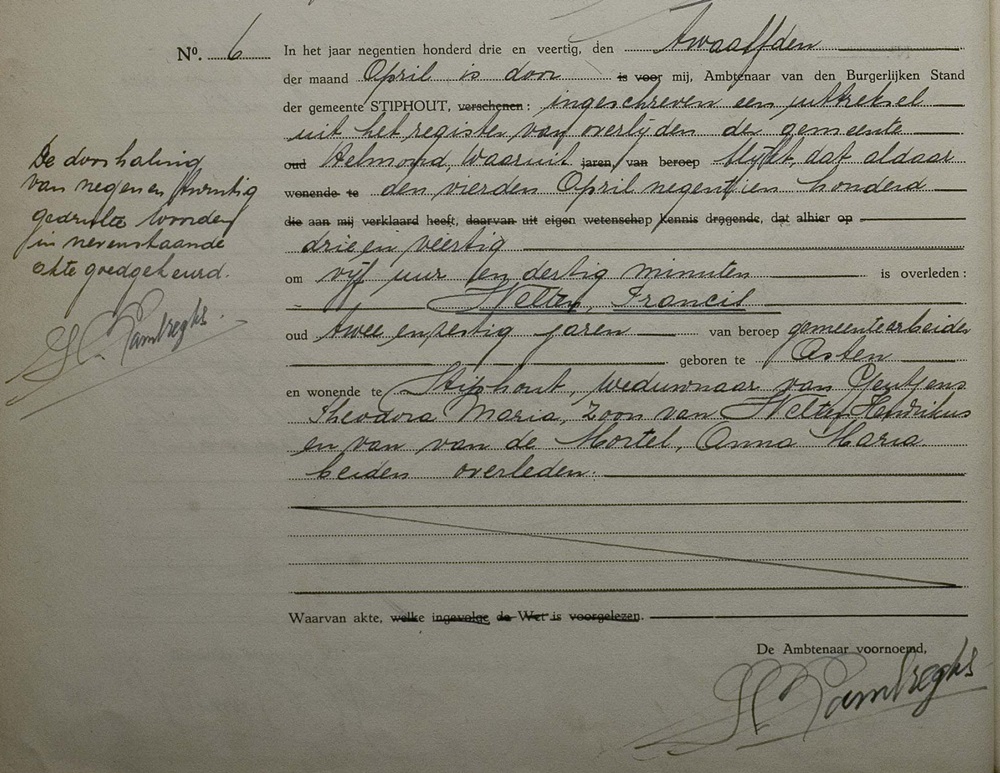 Nº. 6 In het jaar negentien honderd drie en veertig, den twaalfden
der maand April is door is voor mij, Ambtenaar van den Burgerlijken Stand
der gemeente STIPHOUT, verschenen: ingeschreven een uittreksel
uit het register van overlijden der gemeente
oud Helmond, waaruit jaren, van beroep blijkt, dat aldaar
wonende te den vierden April negentien honderd
die aan mij verklaard heeft, daarvan uit eigen wetenschap kennis dragende, dat alhier op
drie en veertig
om vijf uur en dertig minuten is overleden:
Francis
oud twee en zestig jaren van beroep gemeentearbeider
geboren te Asten
en wonende te Stiphout, weduwnaar van
Theodora Maria, zoon van Hendrikus
en van van de Mortel, Anna Maria
beiden overleden.
Waarvan akte, welke ingevolge de Wet is voorgelezen.
De Ambtenaar voornoemd,
De doorhaling
van negen en twintig
gedrukte woorden
in nevenstaande
akte goedgekeurd.